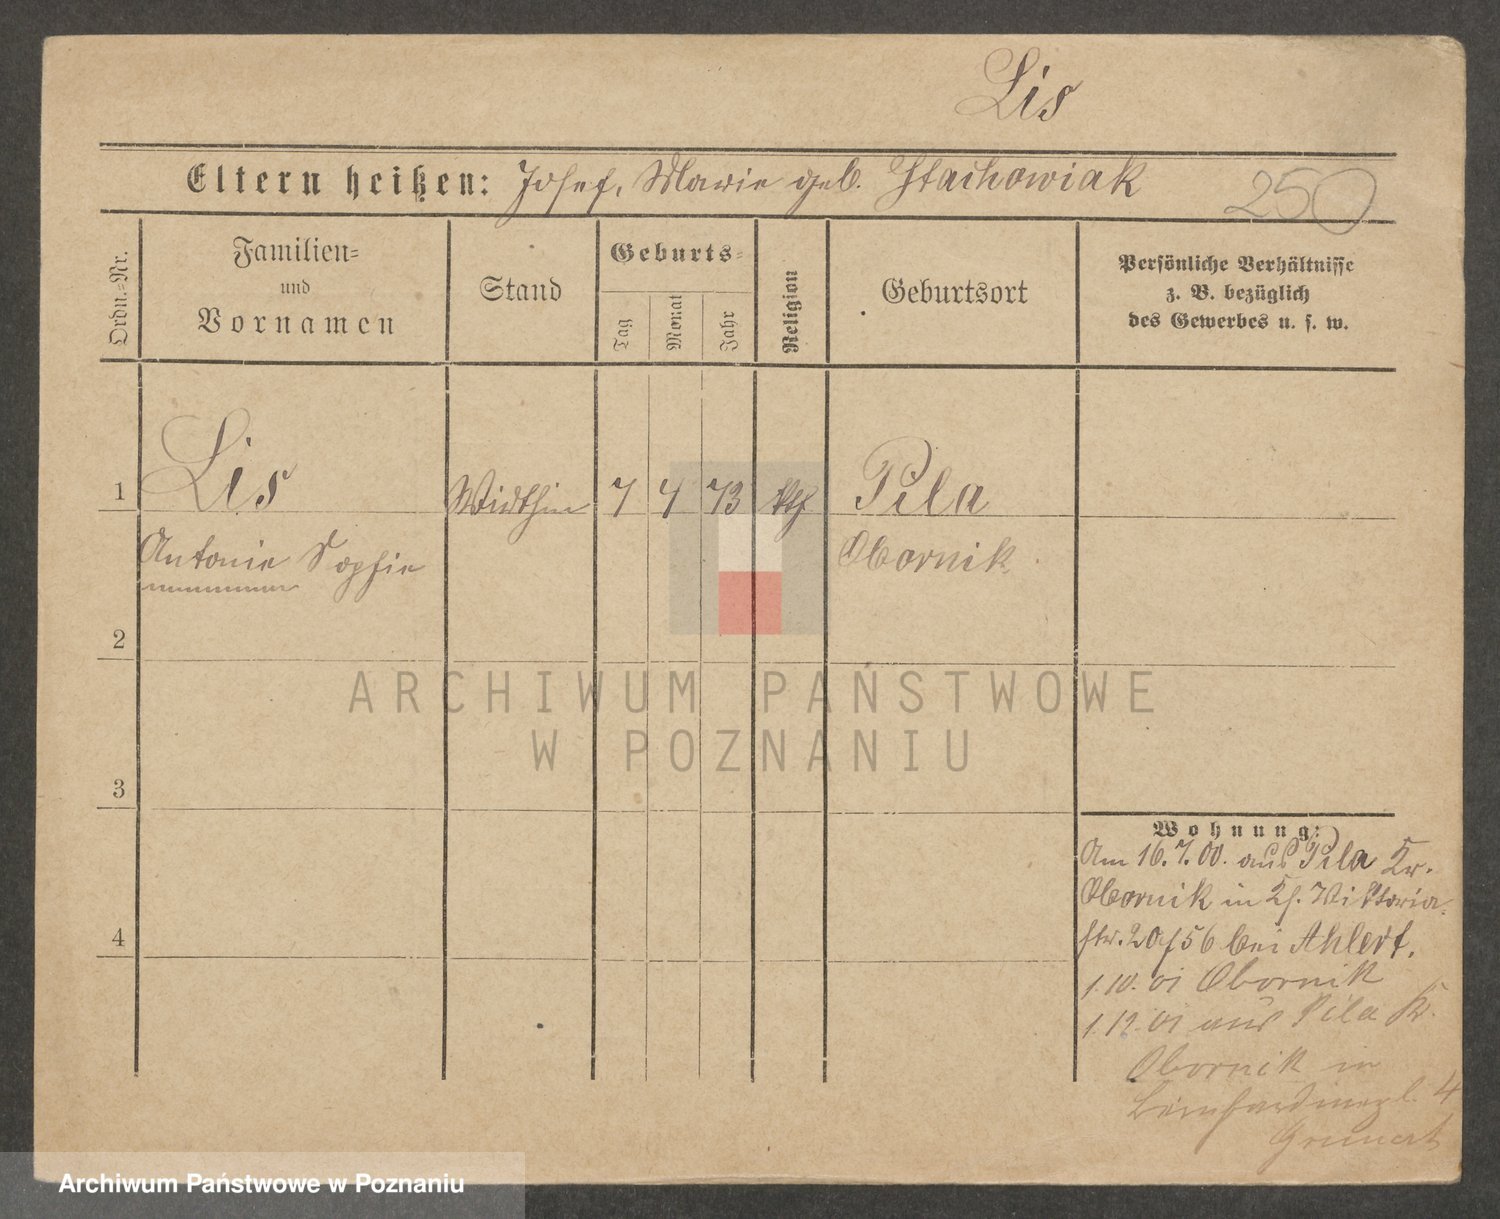 Lis
Eltern heißen: Josef, Marie geb. Stachowiak
250
Ordn.=Nr.
Familien=
und
Vornamen
Stand
Geburts=
Tag
Monat
Jahr
Religion
Geburtsort
Persönliche Verhältnisse
z. B. bezüglich
des Gewerbes u. s. w.
1
Lis
Wirthin
7
4
73
kth
Pila
Antonie Sophie
Obornik
2
ARCHIWUM PAŃSTWOWE
W POZNANIU
3
Wohnung:
Am 16.7.00. aus Pila Kr.
Obornik in Kf. Viktoria
str. 20/56 bei Ahlert.
4
1.10.01 Obornik
1.12.01 aus Pila Kr.
Obornik in
Bernhardinerpl. 4
Grunert
Archiwum Państwowe w Poznaniu